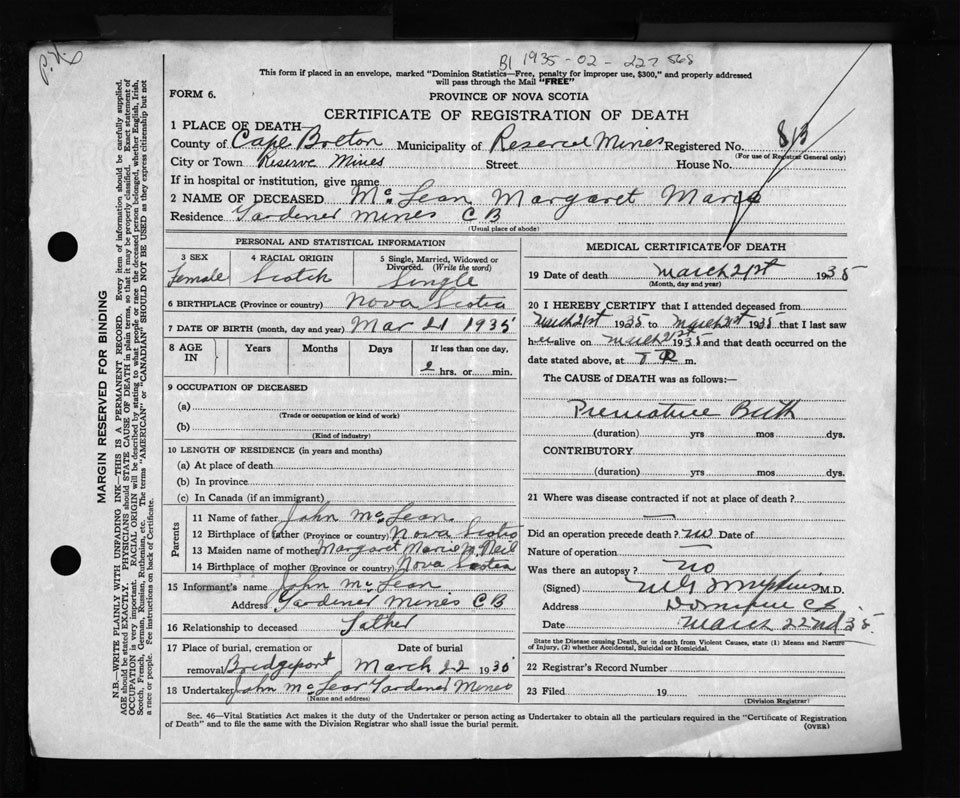 P.V.
B1 1935-02-227568
This form if placed in an envelope, marked "Dominion Statistics—Free, penalty for improper use, $300," and properly addressed
will pass through the Mail "FREE"
FORM 6.
PROVINCE OF NOVA SCOTIA
CERTIFICATE OF REGISTRATION OF DEATH
1 PLACE OF DEATH—
County of Cape Breton Municipality of Reserve Mines Registered No. 813
(For use of Registrar General only)
City or Town Reserve Mines Street House No.
If in hospital or institution, give name
2 NAME OF DECEASED McLean Margaret Marie
Residence Gardener Mines C B
(Usual place of abode)
PERSONAL AND STATISTICAL INFORMATION
3 SEX Female
4 RACIAL ORIGIN Scotch
5 Single, Married, Widowed or Divorced. (Write the word) Single
6 BIRTHPLACE (Province or country) Nova Scotia
7 DATE OF BIRTH (month, day and year) Mar 21 1935
8 AGE IN Years Months Days If less than one day, 2 hrs. or min.
9 OCCUPATION OF DECEASED
(a)
(Trade or occupation or kind of work)
(b)
(Kind of industry)
10 LENGTH OF RESIDENCE (in years and months)
(a) At place of death
(b) In province
(c) In Canada (if an immigrant)
Parents
11 Name of father John McLean
12 Birthplace of father (Province or country) Nova Scotia
13 Maiden name of mother Margaret Marie McNeil
14 Birthplace of mother (Province or country) Nova Scotia
15 Informant's name John McLean
Address Gardener Mines C B
16 Relationship to deceased Father
17 Place of burial, cremation or Date of burial
removal Bridgeport March 22 1935
18 Undertaker John McLean Gardener Mines
(Name and address)
MEDICAL CERTIFICATE OF DEATH
19 Date of death March 21st 1935
(Month, day and year)
20 I HEREBY CERTIFY that I attended deceased from
March 21st 1935 to March 21st 1935 that I last saw
her alive on March 21st 1935 and that death occurred on the
date stated above, at m.
The CAUSE of DEATH was as follows:—
Premature Birth
(duration) yrs mos dys.
CONTRIBUTORY
(duration) yrs mos dys.
21 Where was disease contracted if not at place of death?
—
Did an operation precede death? no Date of
Nature of operation —
Was there an autopsy? no
(Signed) M.D.
Address Dominion C B
Date March 22nd 35.
State the Disease causing Death, or in death from Violent Causes, state (1) Means and Nature
of Injury, (2) whether Accidental, Suicidal or Homicidal.
22 Registrar's Record Number
23 Filed 19
(Division Registrar)
Sec. 46—Vital Statistics Act makes it the duty of the Undertaker or person acting as Undertaker to obtain all the particulars required in the "Certificate of Registration
of Death" and to file the same with the Division Registrar who shall issue the burial permit.
(OVER)
MARGIN RESERVED FOR BINDING
N.B.—WRITE PLAINLY WITH UNFADING INK—THIS IS A PERMANENT RECORD. Every item of information should be carefully supplied.
AGE should be stated EXACTLY. PHYSICIANS should STATE CAUSE OF DEATH in plain terms, so that it may be properly classified. Exact statement of
OCCUPATION is very important. RACIAL ORIGIN will be described by stating to what people or race the deceased person belonged, whether English, Irish,
Scotch, French, German, Russian, Ruthenian, etc. The terms "AMERICAN" or "CANADIAN" SHOULD NOT BE USED as they express citizenship but not
a race or people. See instructions on back of Certificate.